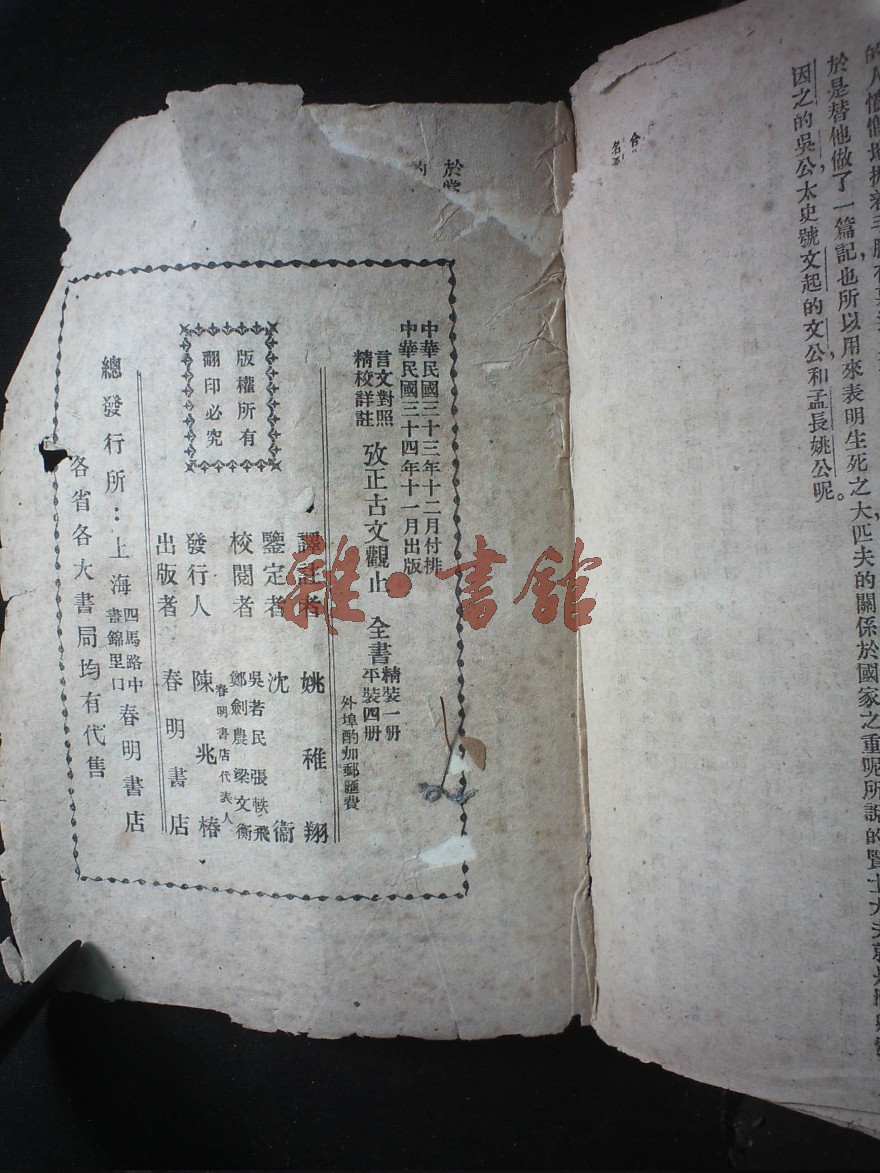 於是替他做了一篇記,也所以用來表明生死之大,匹夫的關係於國家之重呢。所說的賢士大夫
因之的吳公,太史號文起的文公,和孟長姚公呢。
中華民國三十三年十二月付排
中華民國三十四年十一月出版
言文對照
精校詳註
攷正古文觀止 全書
精裝一册
平裝四册
外埠酌加郵匯費
譯註者 姚稚翔
鑒定者 沈衞
校閱者 吳若民 張軼飛
鄭劍農 梁文衡
發行人 春明書店代表人
陳兆椿
出版者 春明書店
版權所有
翻印必究
總發行所:上海
四馬路中
晝錦里口
春明書店
各省各大書局均有代售
雜·書館